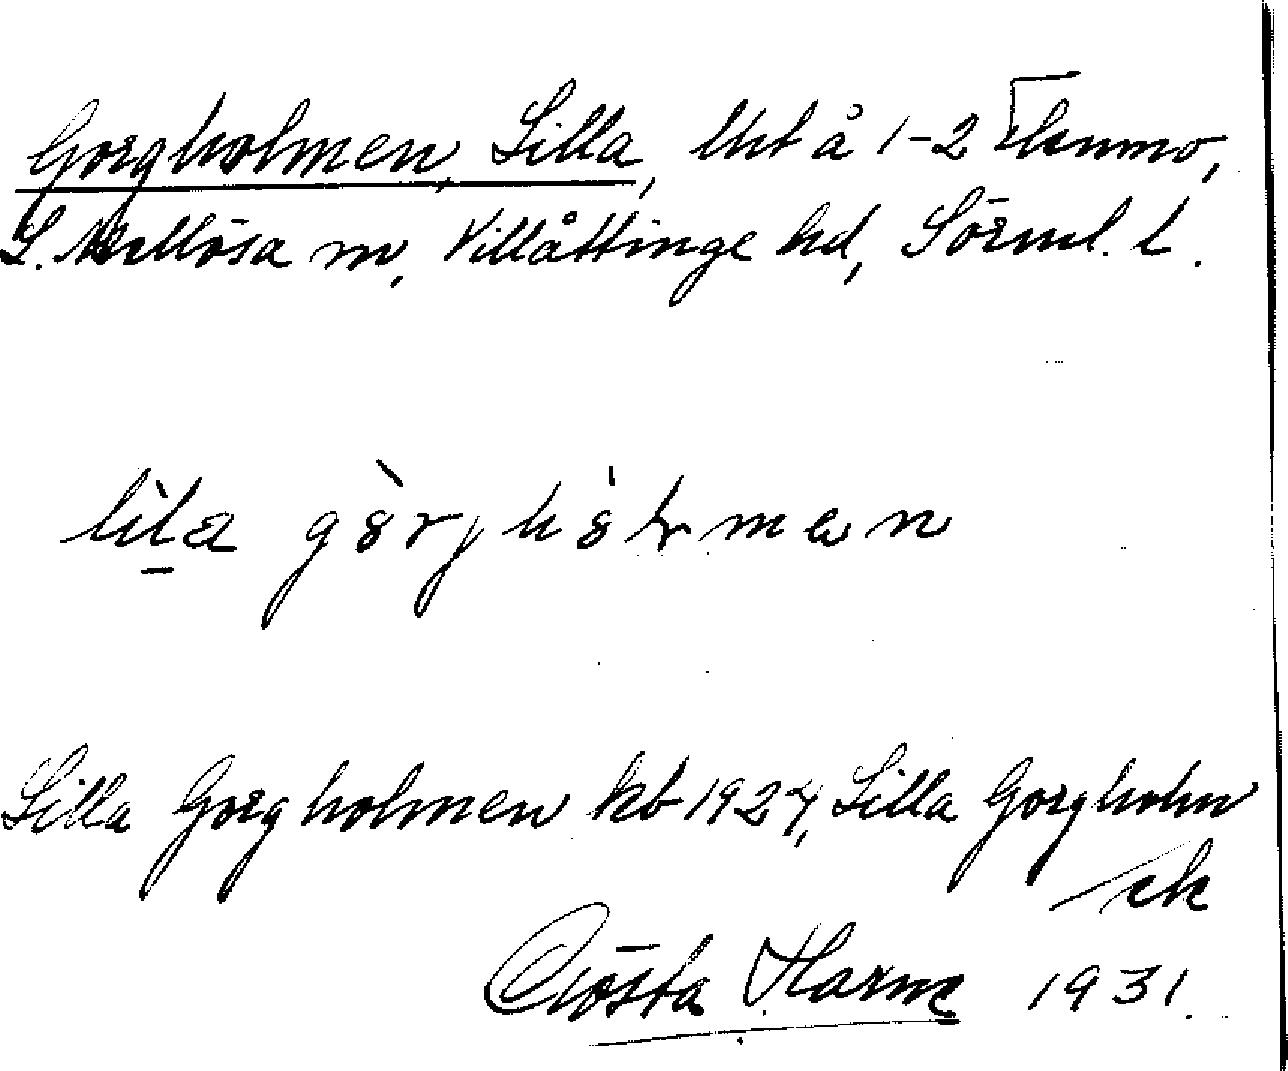 Gorgholmen, Lilla, lht å 1-2 Hammo,
L. Mellösa sn, Villåttinge hd, Sörml. l.
lìla gòrjhólmen
Lilla Gorgholmen kb 1924, Lilla Gorgholm
ek
Gösta Harne 1931.